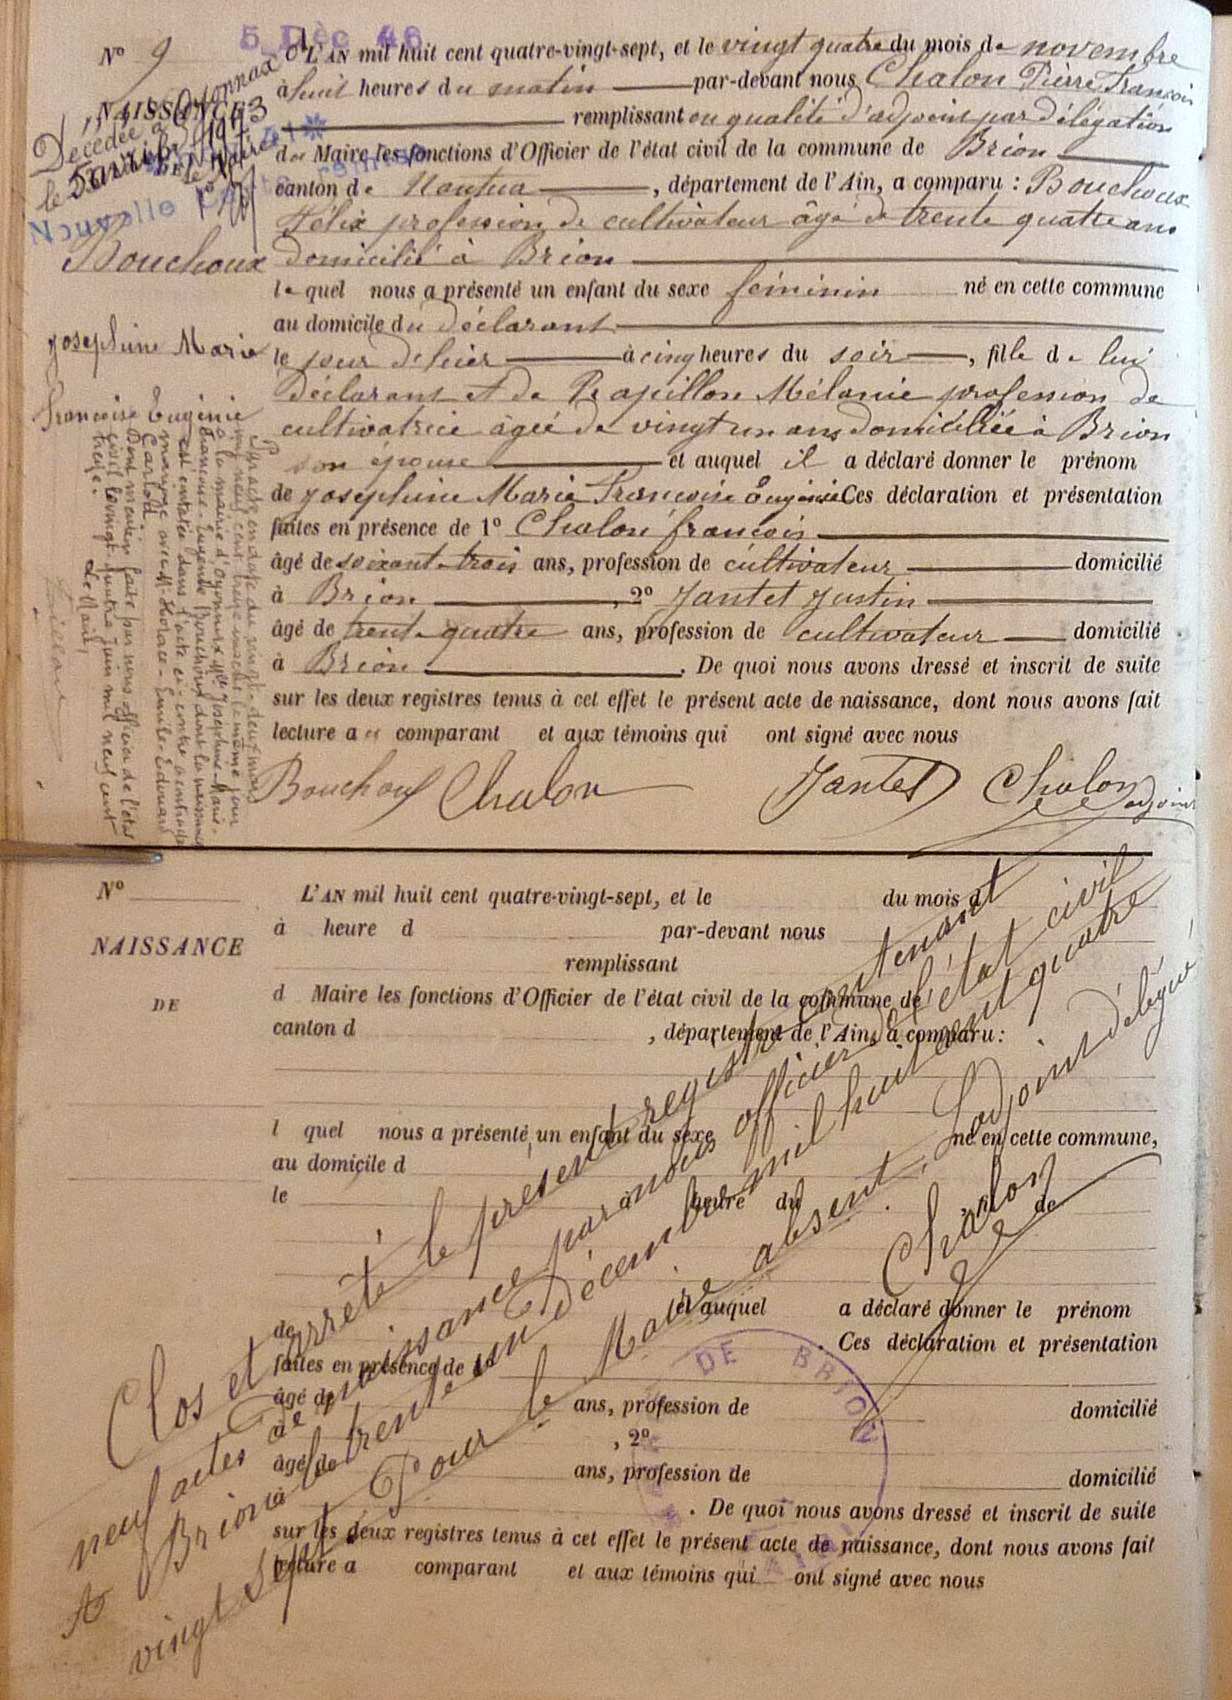 5 Déc 46
N° 9
NAISSANCE
DE
Décédée à Oyonnax
le
Nouvelle
Bouchoux
Josephine Marie
Francoise Eugénie
L'AN mil huit cent quatre-vingt-sept, et le vingt quatre du mois de novembre
à huit heures du matin par-devant nous Chalon Pierre François
remplissant en qualité d'adjoint par délégation
du Maire les fonctions d'Officier de l'état civil de la commune de Brion
canton de Nantua, département de l'Ain, a comparu : Bouchoux
Félix profession de cultivateur âgé de trente quatre ans
domicilié à Brion
le quel nous a présenté un enfant du sexe féminin né en cette commune
au domicile du déclarant
le jour d'hier à cinq heures du soir, fille de lui
déclarant et de Papillon Mélanie profession de
cultivatrice âgée de vingt un ans domiciliée à Brion
son épouse et auquel il a déclaré donner le prénom
de Josephine Marie Francoise Eugénie Ces déclaration et présentation
faites en présence de 1° Chalon françois
âgé de soixant-trois ans, profession de cultivateur domicilié
à Brion, 2° Jantet Justin
âgé de trent-quatre ans, profession de cultivateur domicilié
à Brion. De quoi nous avons dressé et inscrit de suite
sur les deux registres tenus à cet effet le présent acte de naissance, dont nous avons fait
lecture au comparant et aux témoins qui ont signé avec nous
Bouchoux Chalon Jantet Chalon adjoint
Par acte en date du vingt-deux mars
mil neuf cent treize inscrit le même jour
à la mairie d'Oyonnax Mlle Joséphine-Marie-
Françoise-Eugénie Bouchoux dont la naissance
est constatée dans l'acte ci-contre a contracté
mariage avec Mr Horace-Emile-Edouard
Carlod.
Dont mention faite par nous officier de l'état
civil le vingt-quatre Juin mil neuf cent
treize.
Le Maire,
N°
NAISSANCE
DE
L'AN mil huit cent quatre-vingt-sept, et le du mois d
à heure d par-devant nous
remplissant
d Maire les fonctions d'Officier de l'état civil de la commune de
canton d , département de l'Ain, a comparu :
l quel nous a présenté un enfant du sexe né en cette commune,
au domicile d
le à heure du , fil de
et auquel a déclaré donner le prénom
de Ces déclaration et présentation
faites en présence de 1°
âgé de ans, profession de domicilié
à , 2°
âgé de ans, profession de domicilié
à . De quoi nous avons dressé et inscrit de suite
sur les deux registres tenus à cet effet le présent acte de naissance, dont nous avons fait
lecture a comparant et aux témoins qui ont signé avec nous
Clos et arrêté le présent registre contenant
neuf actes de naissance par nous officier de l'état civil
A Brion le trente un décembre mil huit cent quatre
vingt sept. Pour le Maire absent, l'adjoint délégué
Chalon
DE BRION